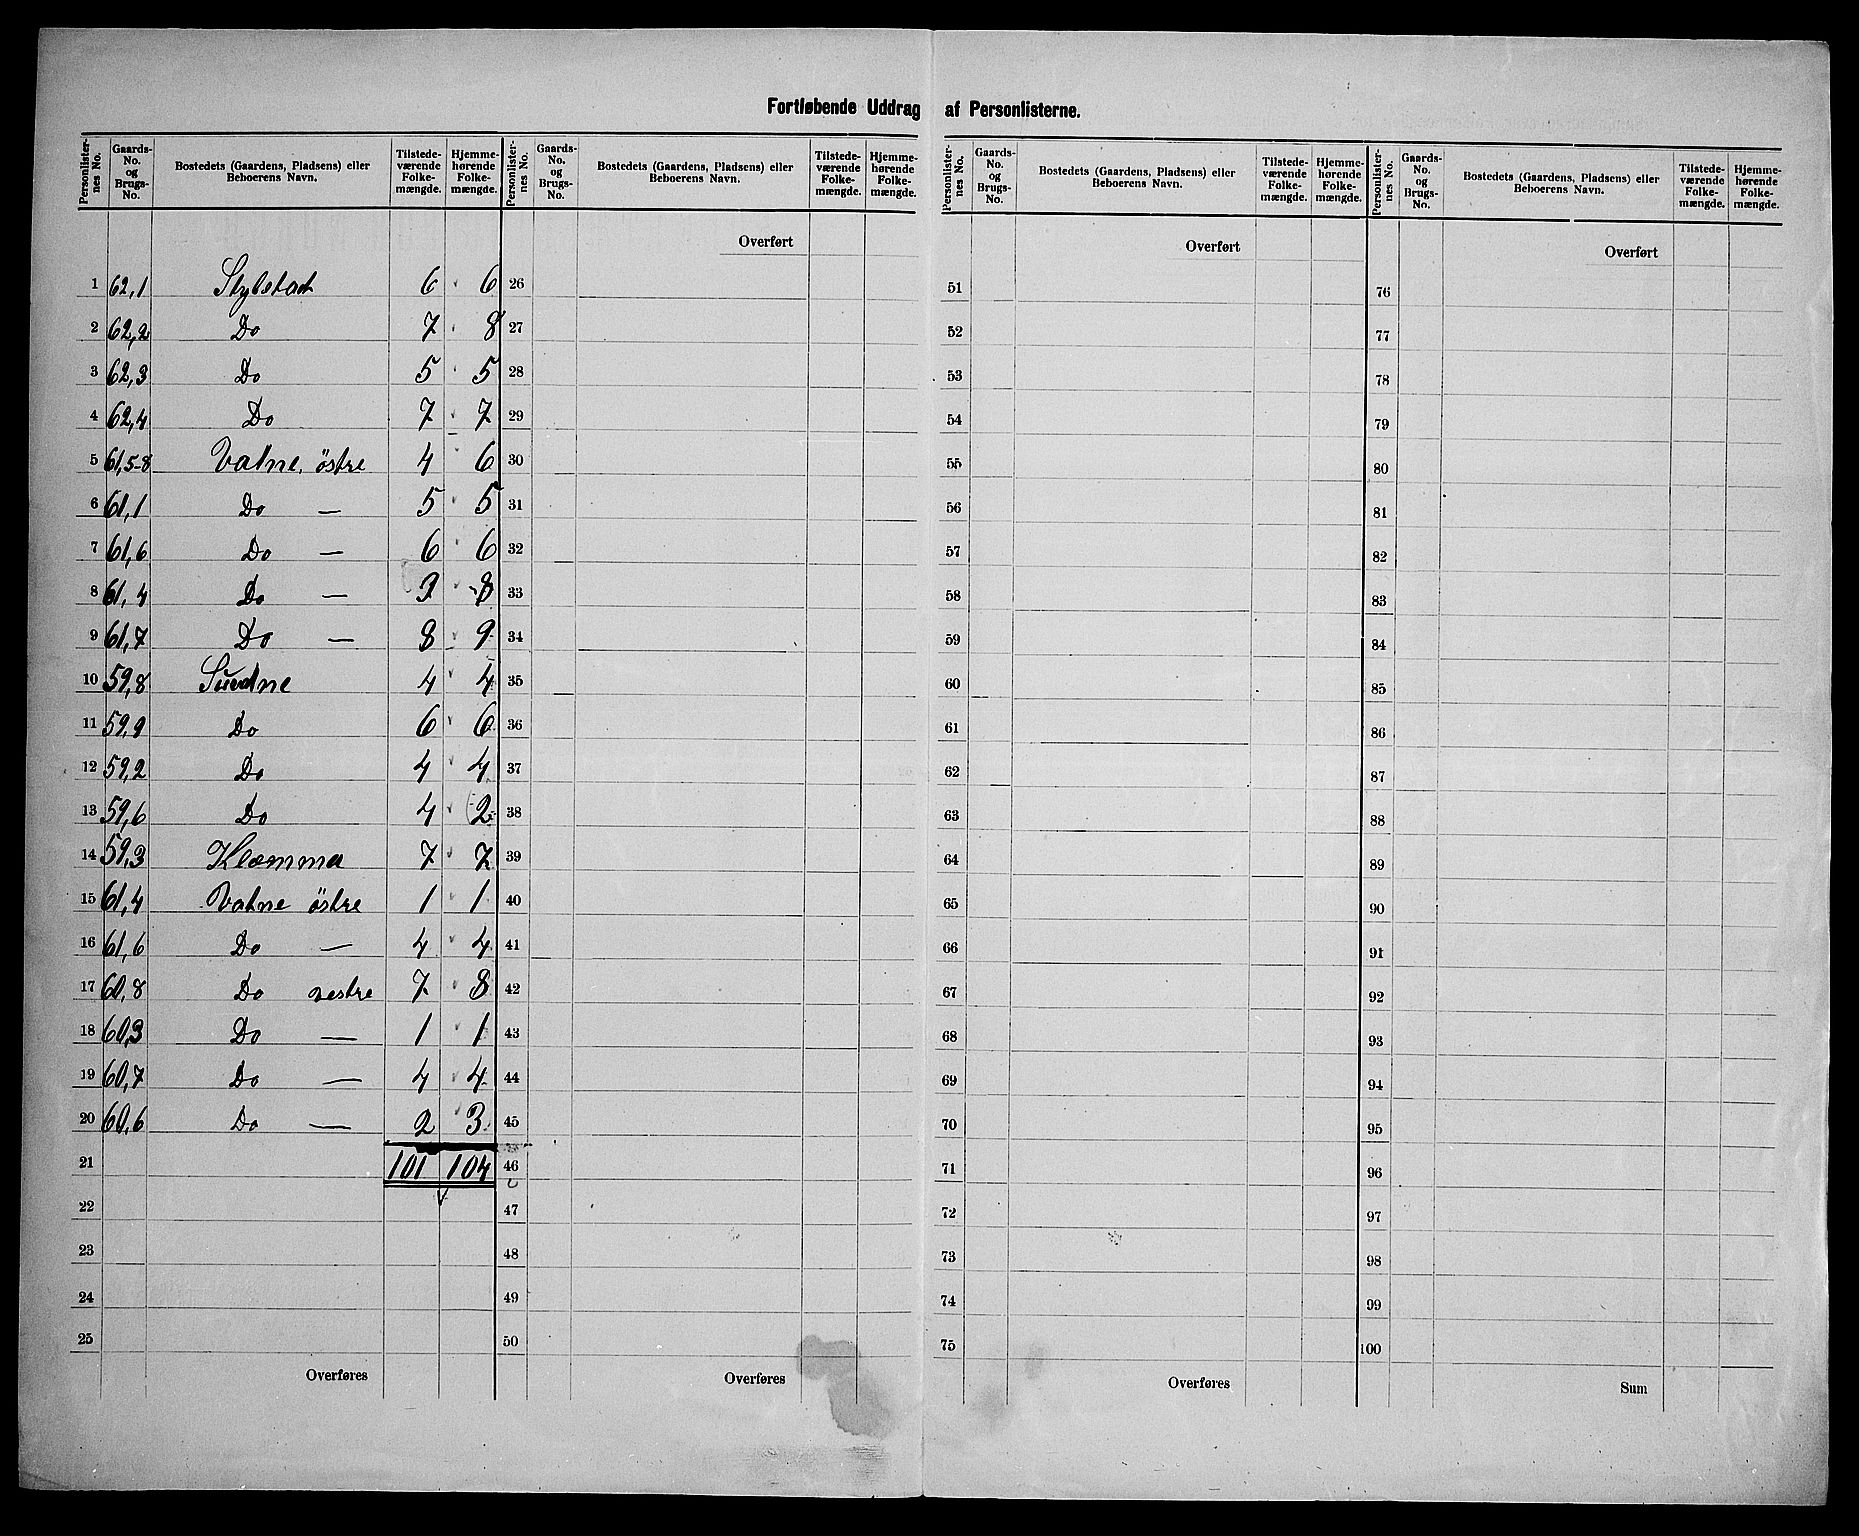 Fortløbende Uddrag af Personlisterne.
Personlister-nes No. Gaards-No. og Brugs-No. Bostedets (Gaardens, Pladsens) eller Beboerens Navn. Tilstede-værende Folke-mængde. Hjemme-hørende Folke-mængde.
Personlister-nes No. Gaards-No. og Brugs-No. Bostedets (Gaardens, Pladsens) eller Beboerens Navn. Tilstede-værende Folke-mængde. Hjemme-hørende Folke-mængde.
Personlister-nes No. Gaards-No. og Brugs-No. Bostedets (Gaardens, Pladsens) eller Beboerens Navn. Tilstede-værende Folke-mængde. Hjemme-hørende Folke-mængde.
Personlister-nes No. Gaards-No. og Brugs-No. Bostedets (Gaardens, Pladsens) eller Beboerens Navn. Tilstede-værende Folke-mængde. Hjemme-hørende Folke-mængde.
Overført Overført Overført
1 62,1 Stylstad 6 6 26 51 76
2 62,2 Do 7 8 27 52 77
3 62,3 Do 5 5 28 53 78
4 62,4 Do 7 7 29 54 79
5 61,5-8 Vatne, östre 4 6 30 55 80
6 61,1 Do — 5 5 31 56 81
7 61,6 Do — 6 6 32 57 82
8 61,4 Do — 8 33 58 83
9 61,7 Do — 8 9 34 59 84
10 59,8 4 4 35 60 85
11 59,9 Do 6 6 36 61 86
12 59,2 Do 4 4 37 62 87
13 59,6 Do 4 2 38 63 88
14 59,3 Klæmma 7 7 39 64 89
15 61,4 Vatne östre 1 1 40 65 90
16 61,6 Do — 4 4 41 66 91
17 60,8 Do vestre 7 8 42 67 92
18 60,3 Do — 1 1 43 68 93
19 60,7 Do — 4 4 44 69 94
20 60,6 Do — 2 3 45 70 95
21 101 104 46 71 96
22 47 72 97
23 48 73 98
24 49 74 99
25 50 75 100
Overføres Overføres Overføres Sum